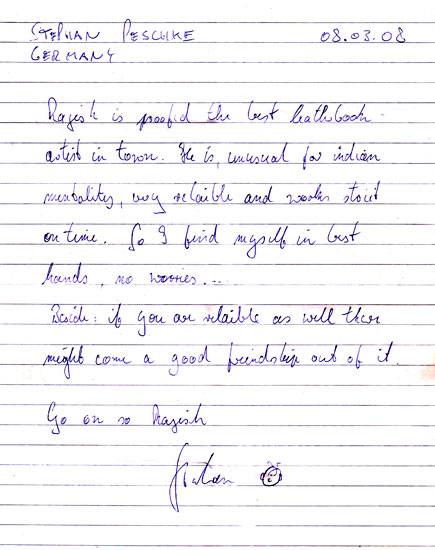 STEPHAN PESCHKE 08.03.08
GERMANY
Rajish is proofed the best leathbook-
artist in town. He is, unusual for indian
mentalities, very relaible and works strict
on time. So I find myself in best
hands, no worries...
Beside: if you are relaible as well ther
might come a good friendship out of it.
Go on so Rajish
Stephan